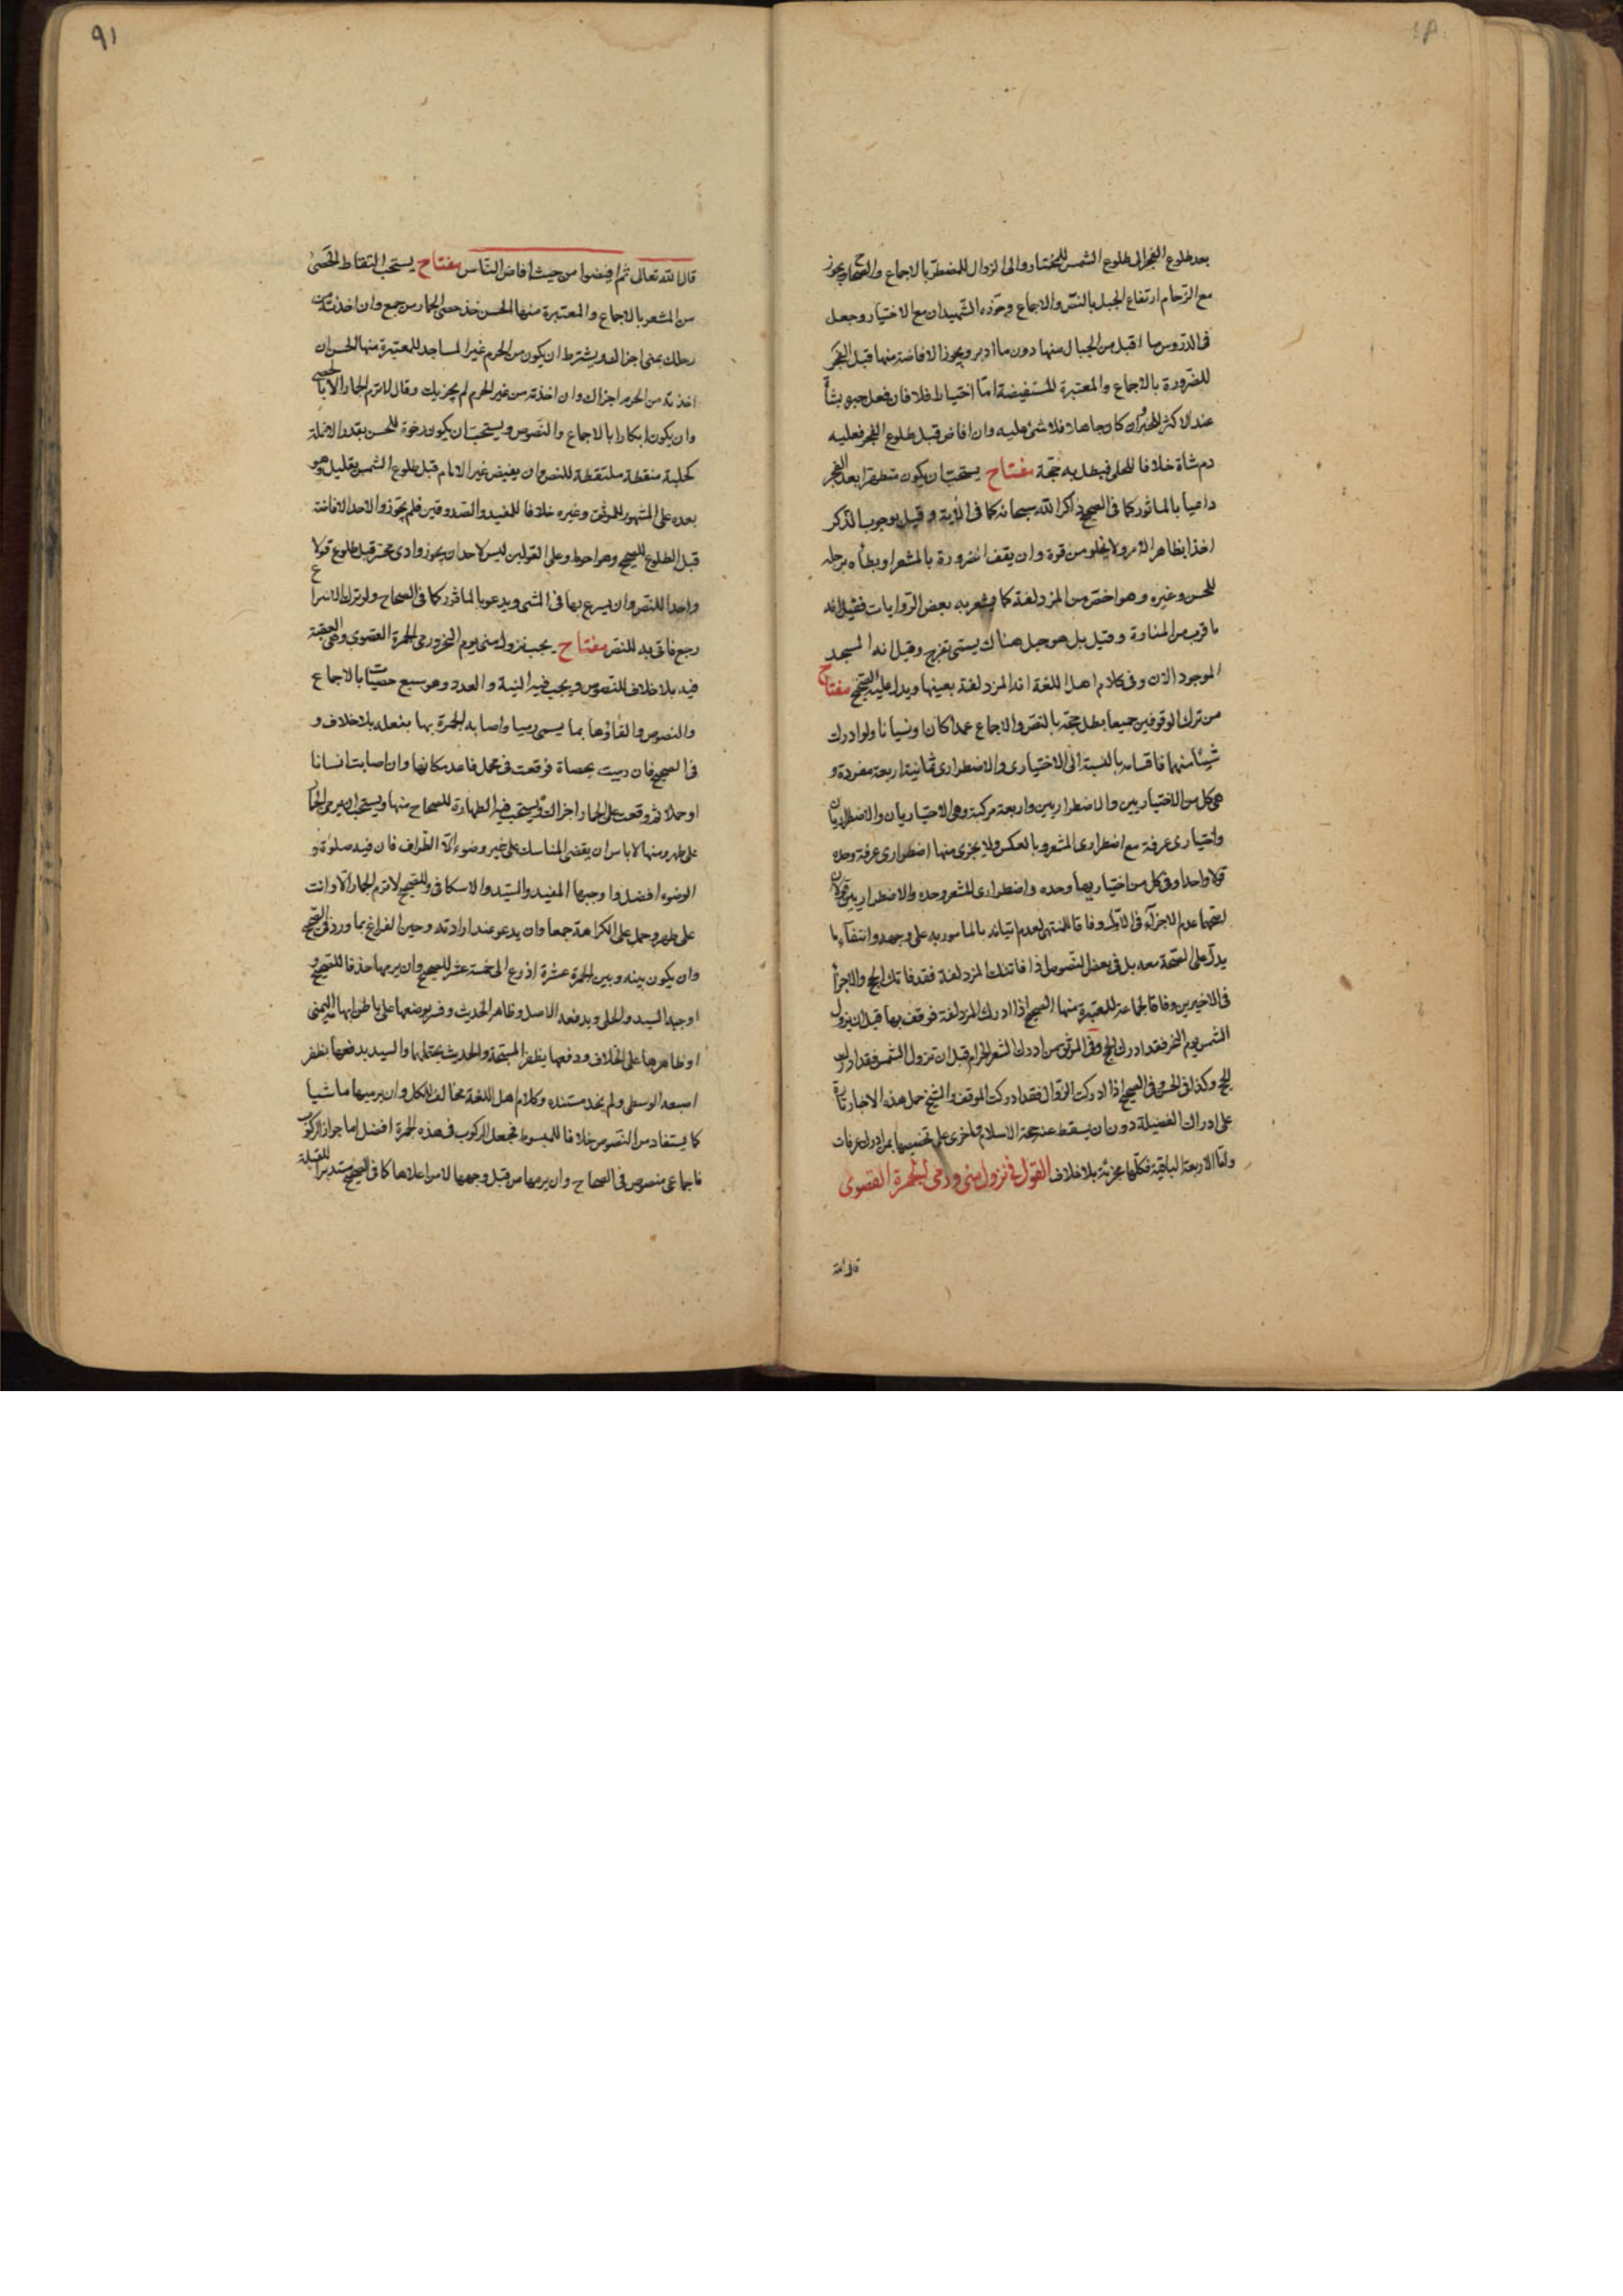 بعد طلوع الفجر الى طلوع الشمس للمختار والى الزوال للمضطر بالاجماع والصحاح ويجوز
مع الزحام ارتفاع الجبل بالنص والاجماع وجوزه الشهيدان مع الاختيار وجعل
فى الدروس ما اقبل من الجبال منها دون ما ادبر ويجوز الافاضة منها قبل الفجر
للضرورة بالاجماع والمعتبرة المستفيضة اما اختياط فلا فان فعل جبر بشاة
عند الاكثر للخبر وان كان جاهلا فلا شئ عليه وان افاض قبل طلوع الفجر فعليه
دم شاة خلافا للحلى فيبطل به حجة مفتاح يستحب ان يكون متطهرا بعد الفجر
داعيا بالماثور كما فى الصحيح ذاكرا لله سبحانه كما فى الاية وقيل بوجوب الذكر
اخذا بظاهر الامر ولا يخلو من قوة وان يقف الضرورة بالمشعر او يطأه برجله
للحسن وغيره وهو اخص من المزدلفة كما يشعر به بعض الروايات فقيل انه
ما قرب من المنارة وقيل بل هو جبل هناك يسمى بقزح وقيل انه المسجد
الموجود الان وفى كلام اهل اللغة انه المزدلفة بعينها ويدل عليه الصحيح مفتاح
من ترك الوقوفين جميعا بطل حجة بالنص والاجماع عمدا كان او نسيانا ولو ادرك
شيئا منهما فاقسامه بالنسبة الى الاختيارى والاضطرارى ثمانية اربعة مفردة و
هى كل من الاختياريين والاضطراريين واربعة مركبة وهى الاختياريان والاضطراريان
واختيارى عرفة مع اضطرارى المشعر وبالعكس ولا يجزى منها اضطرارى عرفة وحده
قولا واحدا وفى كل من اختياريها وحده واضطرارى المشعر وحده والاضطراريين قولان
اصحها عدم الاجزاء فى الاول وفاقا للمنتهى لعدم اتيانه بالمامور به على وجهه وانتفاء ما
يدل على الصحة معه بل فى بعض النصوص اذا فاتتك المزدلفة فقد فاتك الحج والاجزاء
فى الاخيرين وفاقا لجماعة للمعتبرة منها الصحيح اذا ادرك المزدلفة فوقف بها قبل ان يزول
الشمس يوم النحر فقد ادرك الحج وفى الموثق من ادرك المشعر الحرام قبل ان تزول الشمس فقد ادرك
الحج وكذا فى الحسن وفى الصحيح اذا ادركت الزوال فقد ادركت الموقف والشيخ حمل هذه الاخبار تارة
على ادراك الفضيلة دون ان يسقط عنه حجة الاسلام واخرى على تخصيصها بمن ادرك عرفات
واما الاربعة الباقية فكلها مجزئة بلا خلاف القول فى نزول منى ورمى الجمرة القصوى
قال الله
٩١
قال الله تعالى ثم افيضوا من حيث افاض الناس مفتاح يستحب التقاط الحصى
من المشعر بالاجماع والمعتبرة منها الحسن خذ حصى الجمار من جمع وان اخذته من
رحلك بمنى اجزاك ويشترط ان يكون من الحرم غير المساجد للمعتبرة منها الحسن ان
اخذته من الحرم اجزاك وان اخذته من غير الحرم لم يجزيك وقال لا ترم الجمار الا بالحصى
وان يكون ابكارا بالاجماع والنصوص ويستحب ان يكون رخوة للحسن بقدر الانملة
كحلية منقطة ملتقطة للنص وان يفيض غير الامام قبل طلوع الشمس بقليل وهو
بعده على المشهور للموثق وغيره خلافا للمفيد والصدوقين فلم يجوزوا لاحد الافاضة
قبل الطلوع للصحيح وهو احوط وعلى القولين ليس لاحد ان يجوز وادى محسر قبل طلوع قولا
واحدا للنص وان يسرع بها فى المشى ويدعو بالماثور كما فى الصحاح ولو ترك الاسراع
رجع فاتى به للنص مفتاح يجب نزول منى يوم النحر ورمى الجمرة القصوى وهى العقبة
فيه بلا خلاف للنصوص ويجب فيه النية والعدد وهو سبع حصيات بالاجماع
والنصوص والقاؤها بما يسمى رميا واصابة الجمرة بها بفعله بلا خلاف و
فى الصحيح فان رميت بحصاة فوقعت فى محمل فاعد مكانها وان اصابت انسانا
او جملا ثم وقعت على الجمار اجزاك ويستحب فيه الطهارة للصحاح منها ويستحب ان يرمى الجمار
على طهر ومنها لا باس ان يقضى المناسك على غير وضوء الا الطواف فان فيه صلوة و
الوضوء افضل واوجبها المفيد والسيد والاسكافى وللصحيح لا ترم الجمار الا وانت
على طهر وحمل على الكراهة جمعا وان يدعو عند ارادته وحين الفراغ بما ورد فى الصحيح
وان يكون بينه وبين الجمرة عشرة اذرع الى خمسة عشر للصحيح وان يرميها حذفا للصحيح و
اوجبه السيد والحلى ويدفعه الاصل وظاهر الحديث وفسر بوضعها على باطن ابهام اليمنى
او ظاهرها على الخلاف ودفعها بظفر المسبحة والحديث يحتملها والسيد يدفعها بظفر
اصبعه الوسطى ولم يجد مستنده وكلام اهل اللغة مخالف للكل وان يرميها ماشيا
كما يستفاد من النصوص خلافا للمبسوط فجعل الركوب فى هذه الجمرة افضل اما جواز الركوب
فاجماعى منصوص فى الصحاح وان يرميها من قبل وجهها لا من اعلاها كما فى الصحيح مستدبرا للقبلة